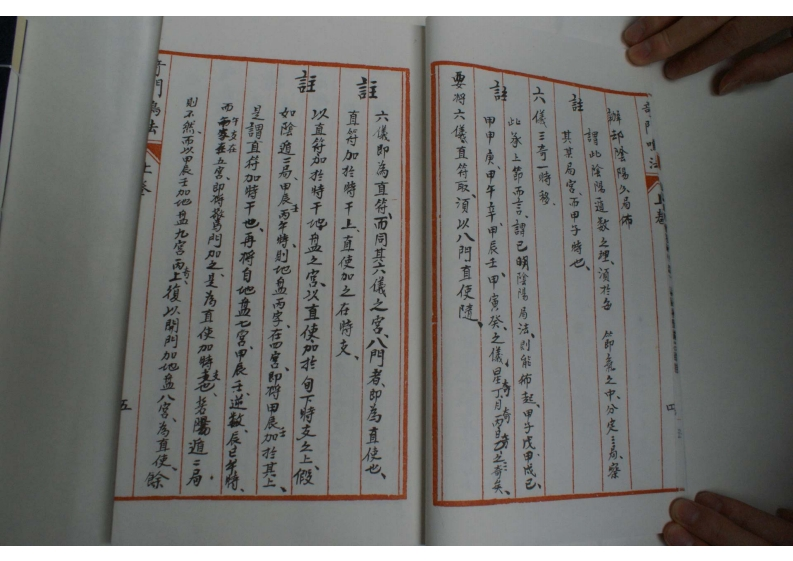 辦却陰陽久局佈
謂此陰陽遁数之理、須於各節氣之中、分定三局、察
其其局宮、而甲子時也、
註
六儀三奇一時移、
此承上節而言、謂已明陰陽局法、則能佈起、甲子戊甲戌己、
註
甲申庚、甲午辛、甲辰壬、甲寅癸、之儀、星丁月丙日乙之奇矣、
奇奇奇三
要將六儀直符取、須以八門直使隨、
四
六儀即為直符、而同其六儀之宮八門者、即為直使也、
註
直符加於時干上、直使加之在時支、
以直符加於時干地盘之宮、以直使加於旬下時支之上、假
註
如陰遁二局、甲辰壬丙午時、則地盘丙字在四宮、即将甲辰壬加於其上、
是謂直符加時干也、再将自地盘七宮、甲辰壬逆数、辰巳午時、
而午支在五宮、即将驚門加之、是為直使加時支也、若陽遁二局
則不然、而以甲辰壬加地盘九宮丙奇上、復以開門加地盘八宮、為直使、餘
奇門鳴法
上卷
五